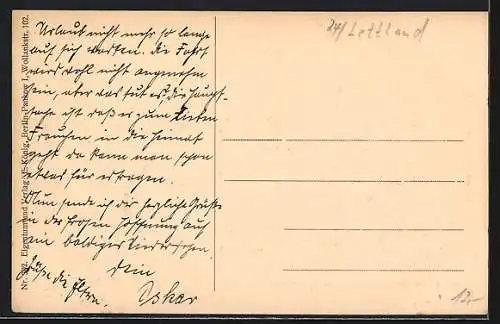 Urlaub nicht mehr so lange
auf sich warten. Die Fahrt
wird wohl nicht angenehm
sein, aber was tut es, die Haupt-
sache ist daß es zum lieben
Frauchen in die Heimat
geht da kann man schon
etwas für ertragen.
Nun sende ich dir herzliche Grüße
in der frohen Hoffnung auf
ein baldiges Wiedersehen.
Dein
Oskar
Grüße die Eltern.
24/ Lettland
12,-
Eigentum und Verlag E. König, Berlin-Pankow I, Wollankstr. 102.